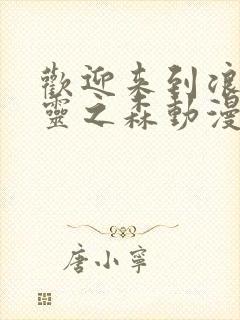 歡迎来到浪
靈之森動漫
唐小寧